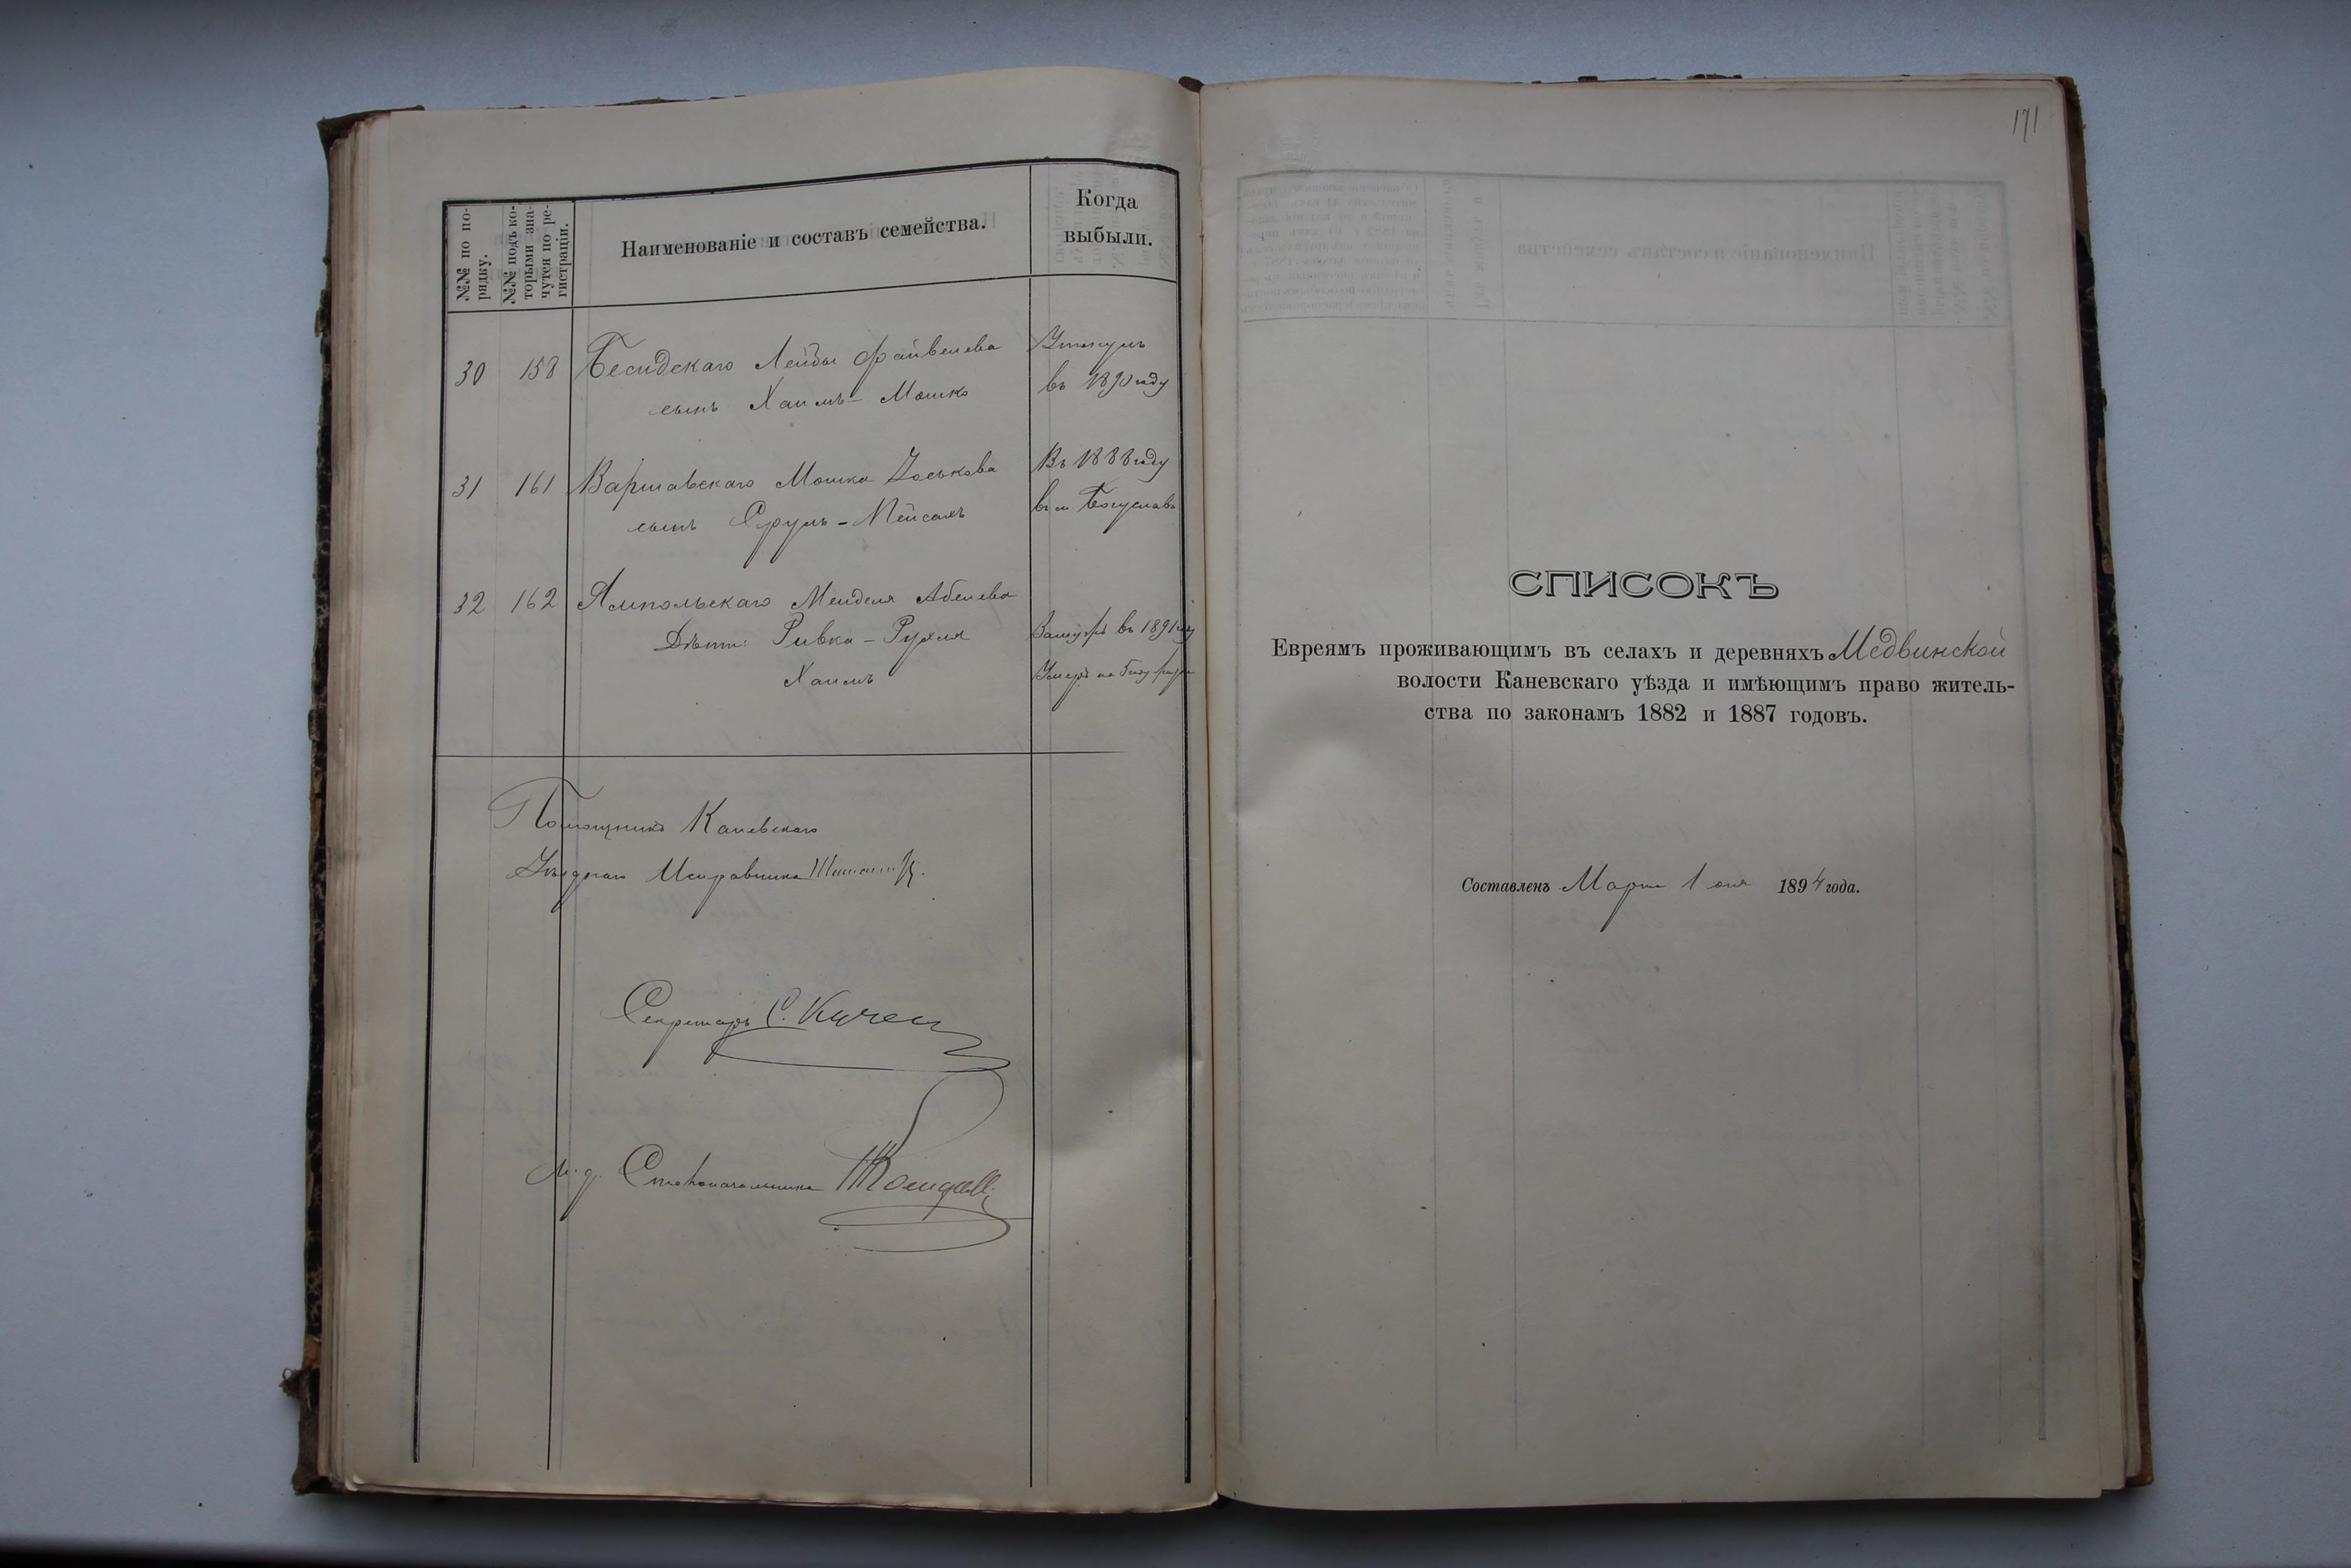 №№ по по-
рядку.
№№ подъ ко-
торыми зна-
чутся по ре-
гистраціи.
Наименованіе и составъ семейства.
Когда
выбыли.
30 158 Бесидскаго Лейбы Файвелева
сынъ Хаимъ-Мошко
Утонулъ
въ 1890 году
31 161 Варшавскаго Мошка Іоськова
сынъ Сруль-Пейсахъ
Въ 1888 году
въ м Богуславъ
32 162 Ямпольскаго Менделя Абелева
Дѣти: Ривка-Рухля
Хаимъ
Замуж въ 1891 году
Умеръ
Помощникъ Каневскаго
Уѣзднаго Исправника
Секретарь С.
И. д. Столоначальника
171
СПИСОКЪ
Евреямъ проживающимъ въ селахъ и деревняхъ Медвинской
волости Каневскаго уѣзда и имѣющимъ право житель-
ства по законамъ 1882 и 1887 годовъ.
Составленъ Марта 1 дня 1894 года.